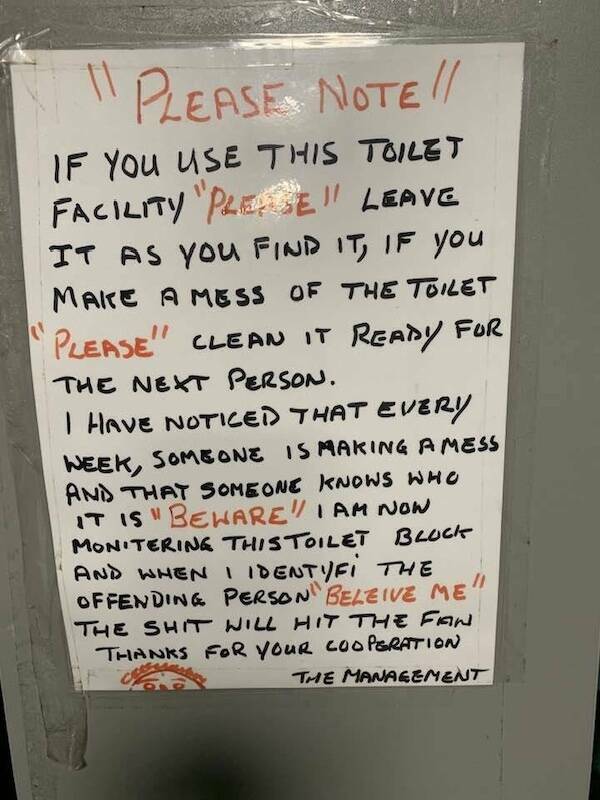 "PLEASE NOTE"
IF YOU USE THIS TOILET
FACILITY "PLEASE" LEAVE
IT AS YOU FIND IT, IF YOU
MAKE A MESS OF THE TOILET
"PLEASE" CLEAN IT READY FOR
THE NEXT PERSON.
I HAVE NOTICED THAT EVERY
WEEK, SOMEONE IS MAKING A MESS
AND THAT SOMEONE KNOWS WHO
IT IS "BEWARE" I AM NOW
MONITERING THIS TOILET BLOCK
AND WHEN I IDENTYFI THE
OFFENDING PERSON "BELEIVE ME"
THE SHIT WILL HIT THE FAN
THANKS FOR YOUR COOPERATION
THE MANAGEMENT